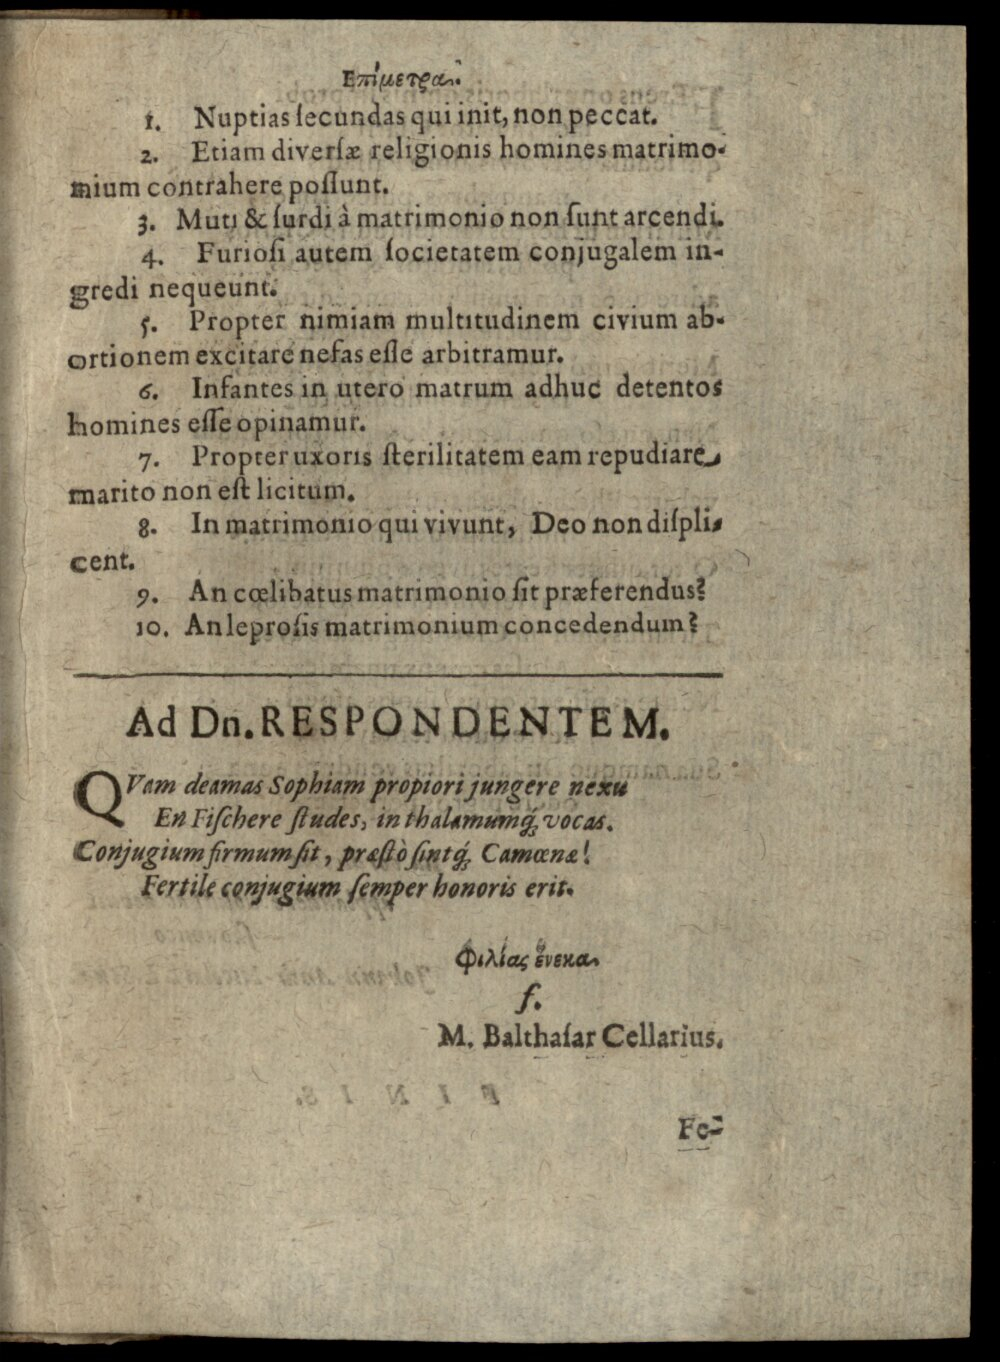 Επίμετρα.
1. Nuptias ſecundas qui init, non peccat.
2. Etiam diverſæ religionis homines matrimo-
mium contrahere poſſunt.
3. Muti & ſurdi à matrimonio non ſunt arcendi.
4. Furioſi autem ſocietatem conjugalem in-
gredi nequeunt.
5. Propter nimiam multitudinem civium ab-
ortionem excitare nefas eſſe arbitramur.
6. Infantes in utero matrum adhuc detentos
homines eſſe opinamur.
7. Propter uxoris ſterilitatem eam repudiare
marito non eſt licitum.
8. In matrimonio qui vivunt, Deo non diſpli-
cent.
9. An cœlibatus matrimonio ſit præferendus?
10. An leproſis matrimonium concedendum?
Ad Dn. RESPONDENTEM.
QVam deamas Sophiam propiori jungere nexu
En Fiſchere ſtudes, in thalamumq́; vocas.
Conjugium firmum ſit, præſtò ſintq́; Camœnæ!
Fertile conjugium ſemper honoris erit.
Φιλίας ἕνεκα
f.
M. Balthaſar Cellarius.
Fe-